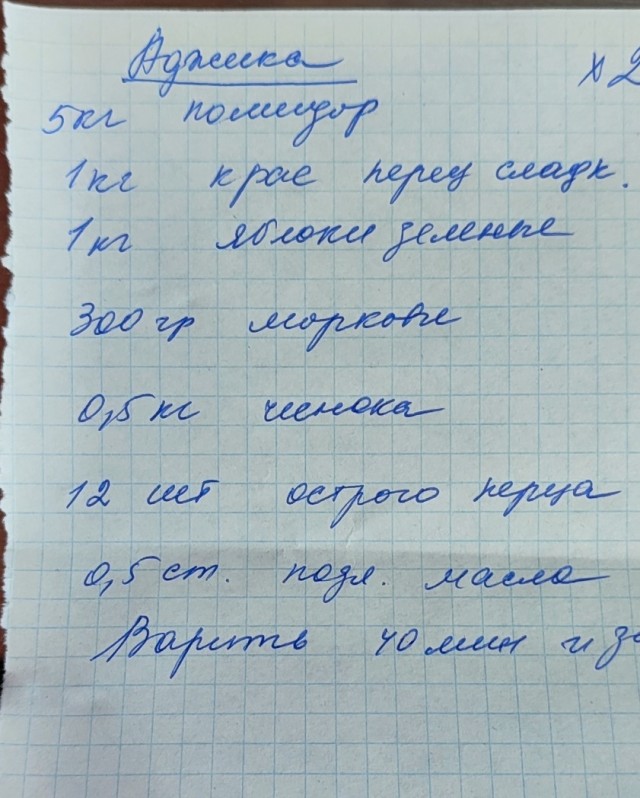 Аджика х2
5кг помидор
1кг крас перец сладк.
1кг яблоки зеленые
300 гр моркови
0,5 кг чеснока
12 шт острого перца
0,5 ст. подл. масла
Варить 40 мин и за